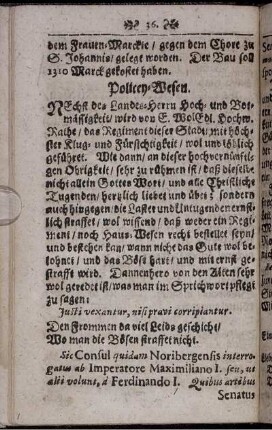 36.
dem Frauen-Marckte / gegen dem Chore zu
S. Johannis / gelegt worden. Der Bau soll
1310 Marck gekostet haben.
Policey-Wesen.
NEchst des Landes-Herrn Hoch- und Bot-
mässigkeit / wird von E. WolEdl. Hochw.
Rathe / das Regiment dieser Stadt / mit höch-
ster Klug- und Fürsichtigkeit / wol und löblich
geführet. Wie dann / an dieser hochvernünfti-
gen Obrigkeit / sehr zu rühmen ist / daß dieselbe
nicht allein Gottes Wort / und alle Christliche
Tugenden / hertzlich liebet und übet; sondern
auch hingegen / die Laster und Untugenden ernst-
lich straffet / wol wissend / daß weder ein Regi-
ment / noch Haus-Wesen recht bestellet seyn /
und bestehen kan / wann nicht das Gute wol be-
lohnet / und das Böse hart / und mit ernst ge-
strafft wird. Dannenhero von den Alten sehr
wol geredet ist / was man im Sprichwort pflegt
zu sagen:
Justi vexantur, nisi pravi corripiantur.
Den Frommen da viel Leids geschicht /
Wo man die Bösen straffet nicht.
Sic Consul quidam Noribergensis interro-
gatus ab Imperatore Maximiliano I. seu, ut
alii volunt, à Ferdinando I. Quibus artibus
Senatus